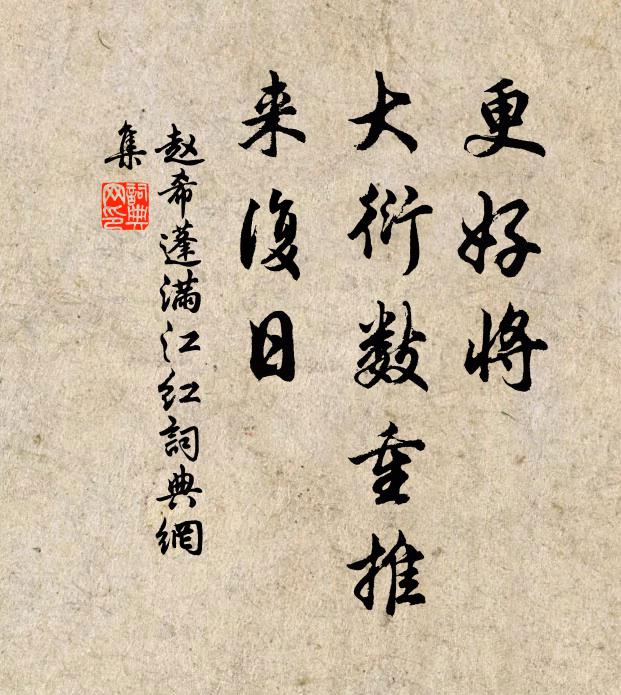 更好将
大衍数重推
来復日
赵希蓬满江红詞典網
集
詞典网印